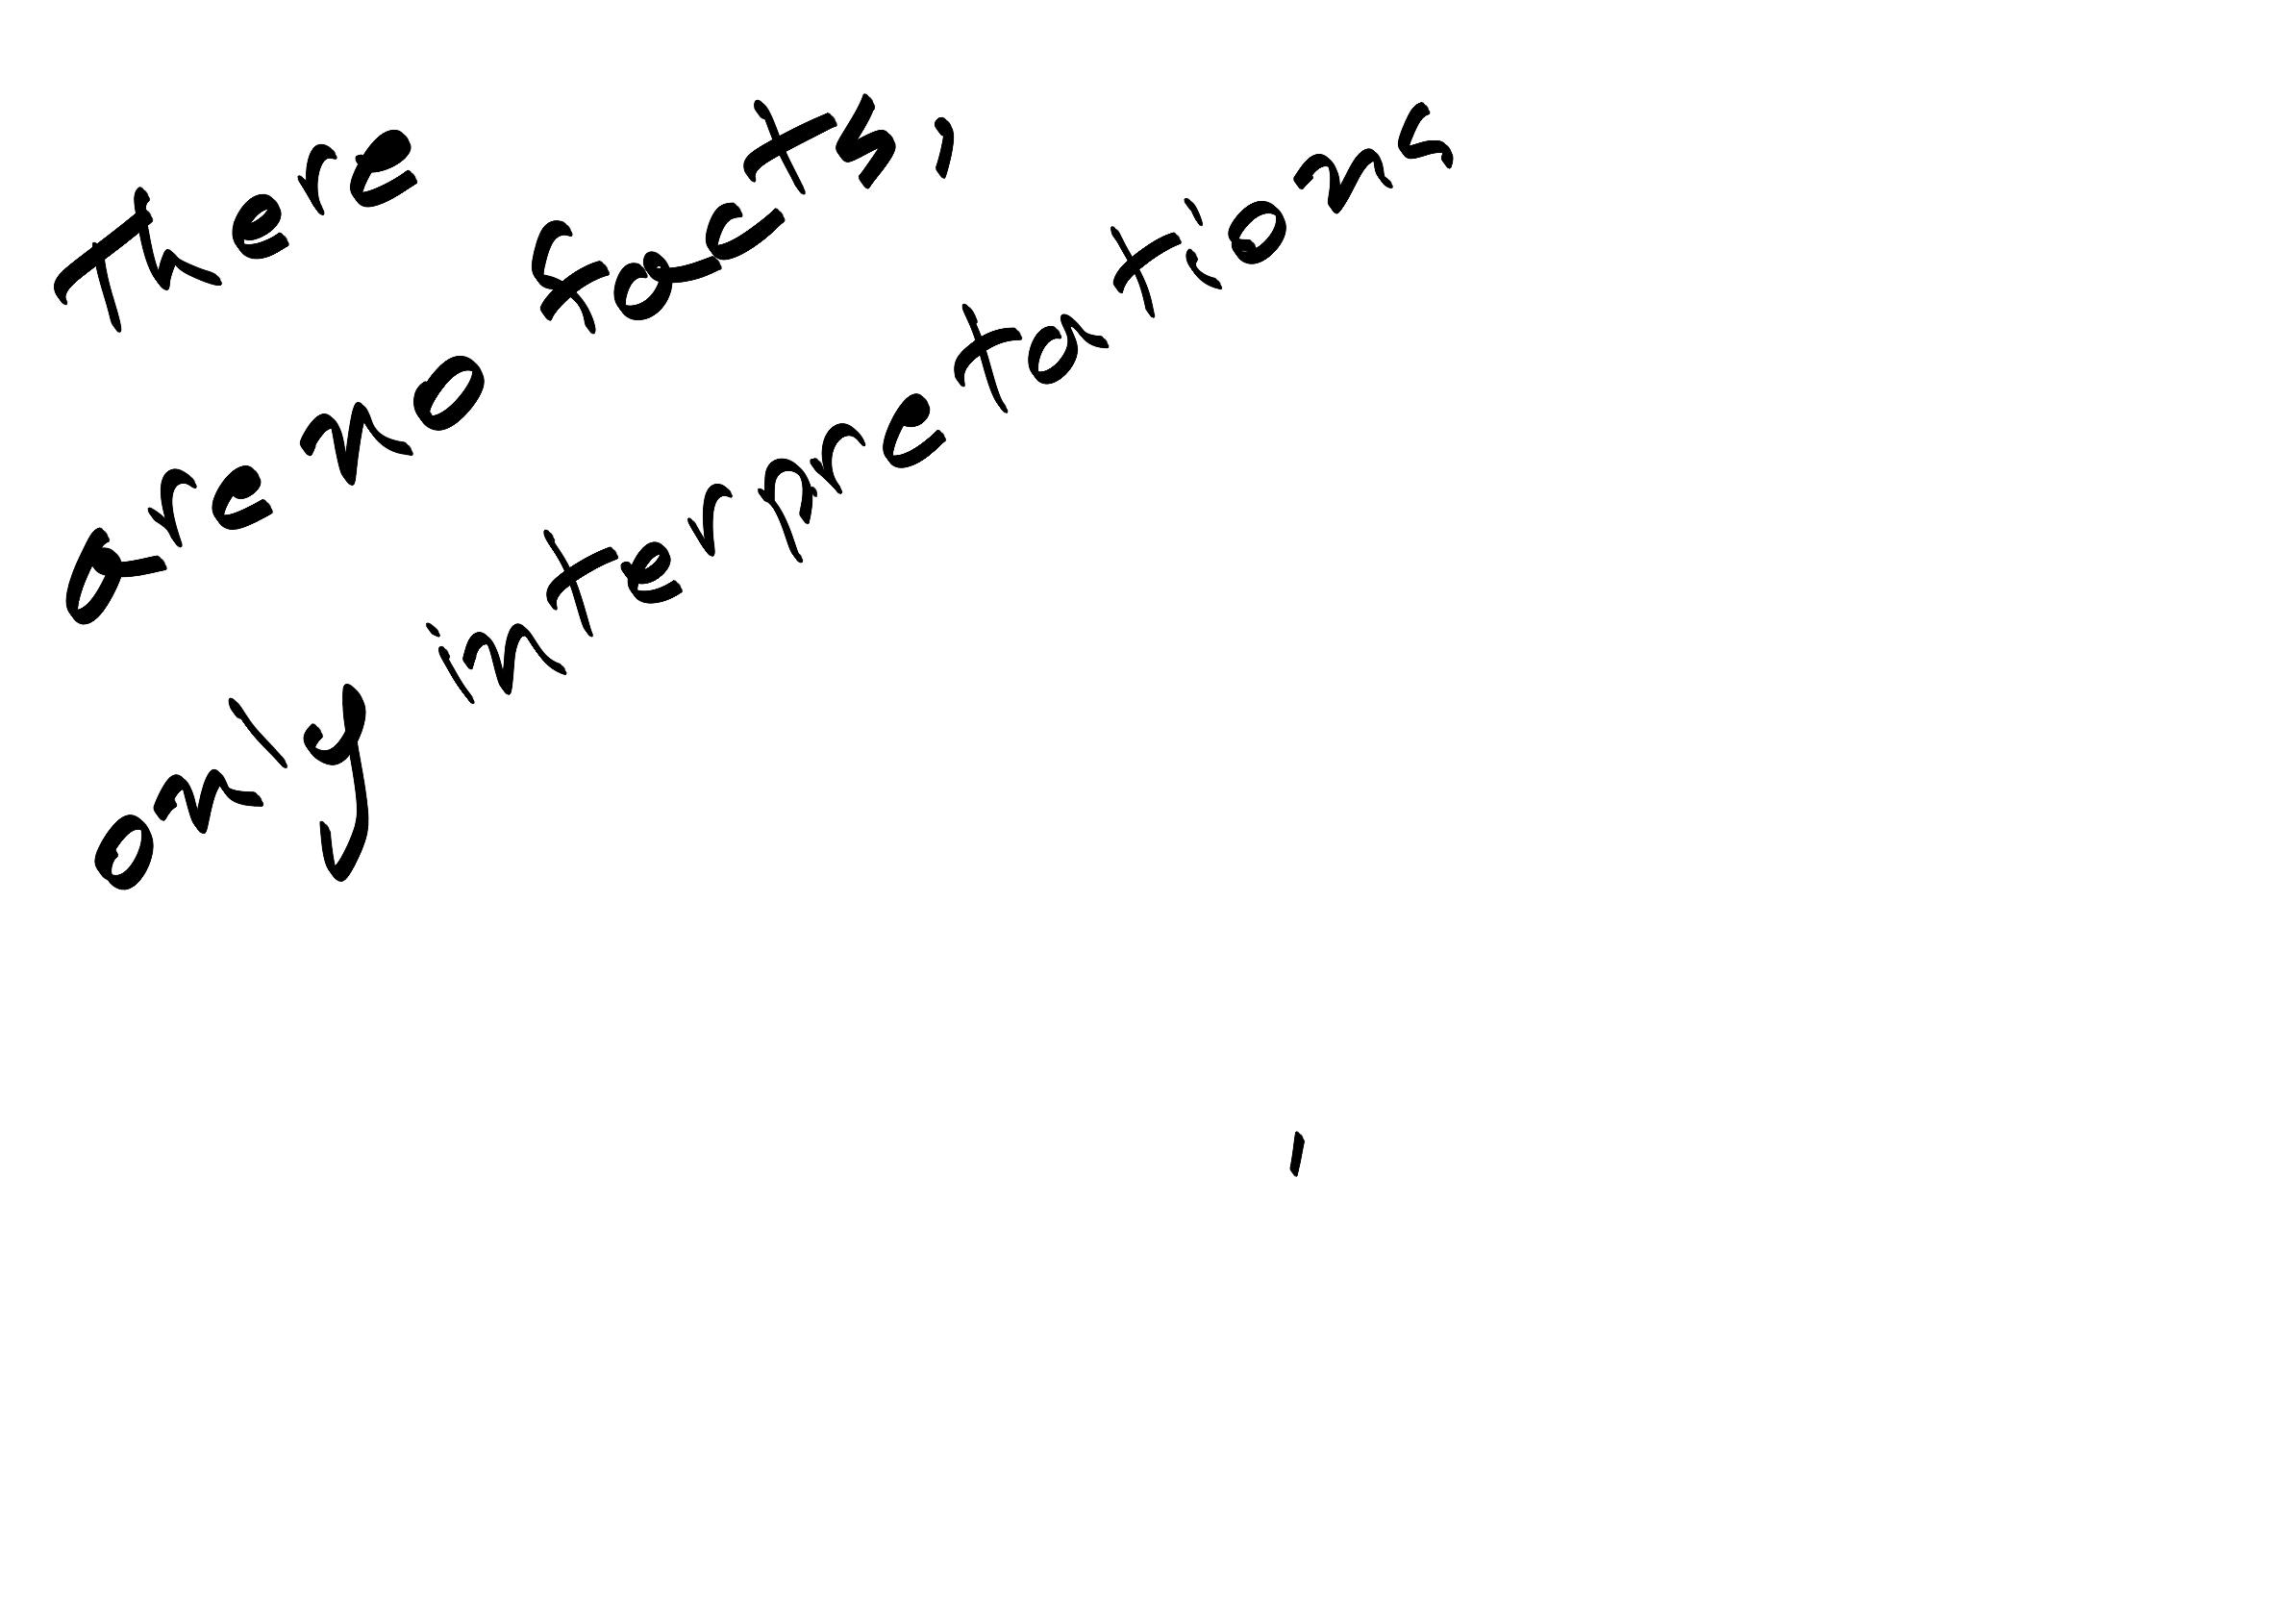 There
are no facts,
only interpretations